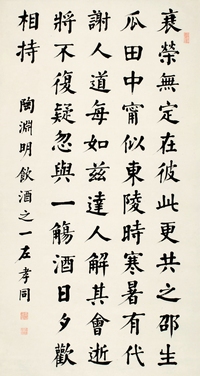 衰榮無定在彼此更共之邵生
瓜田中甯似東陵時寒暑有代
謝人道每如茲達人解其會逝
將不復疑忽與一觴酒日夕歡
相持
陶淵明飲酒之一左孝同